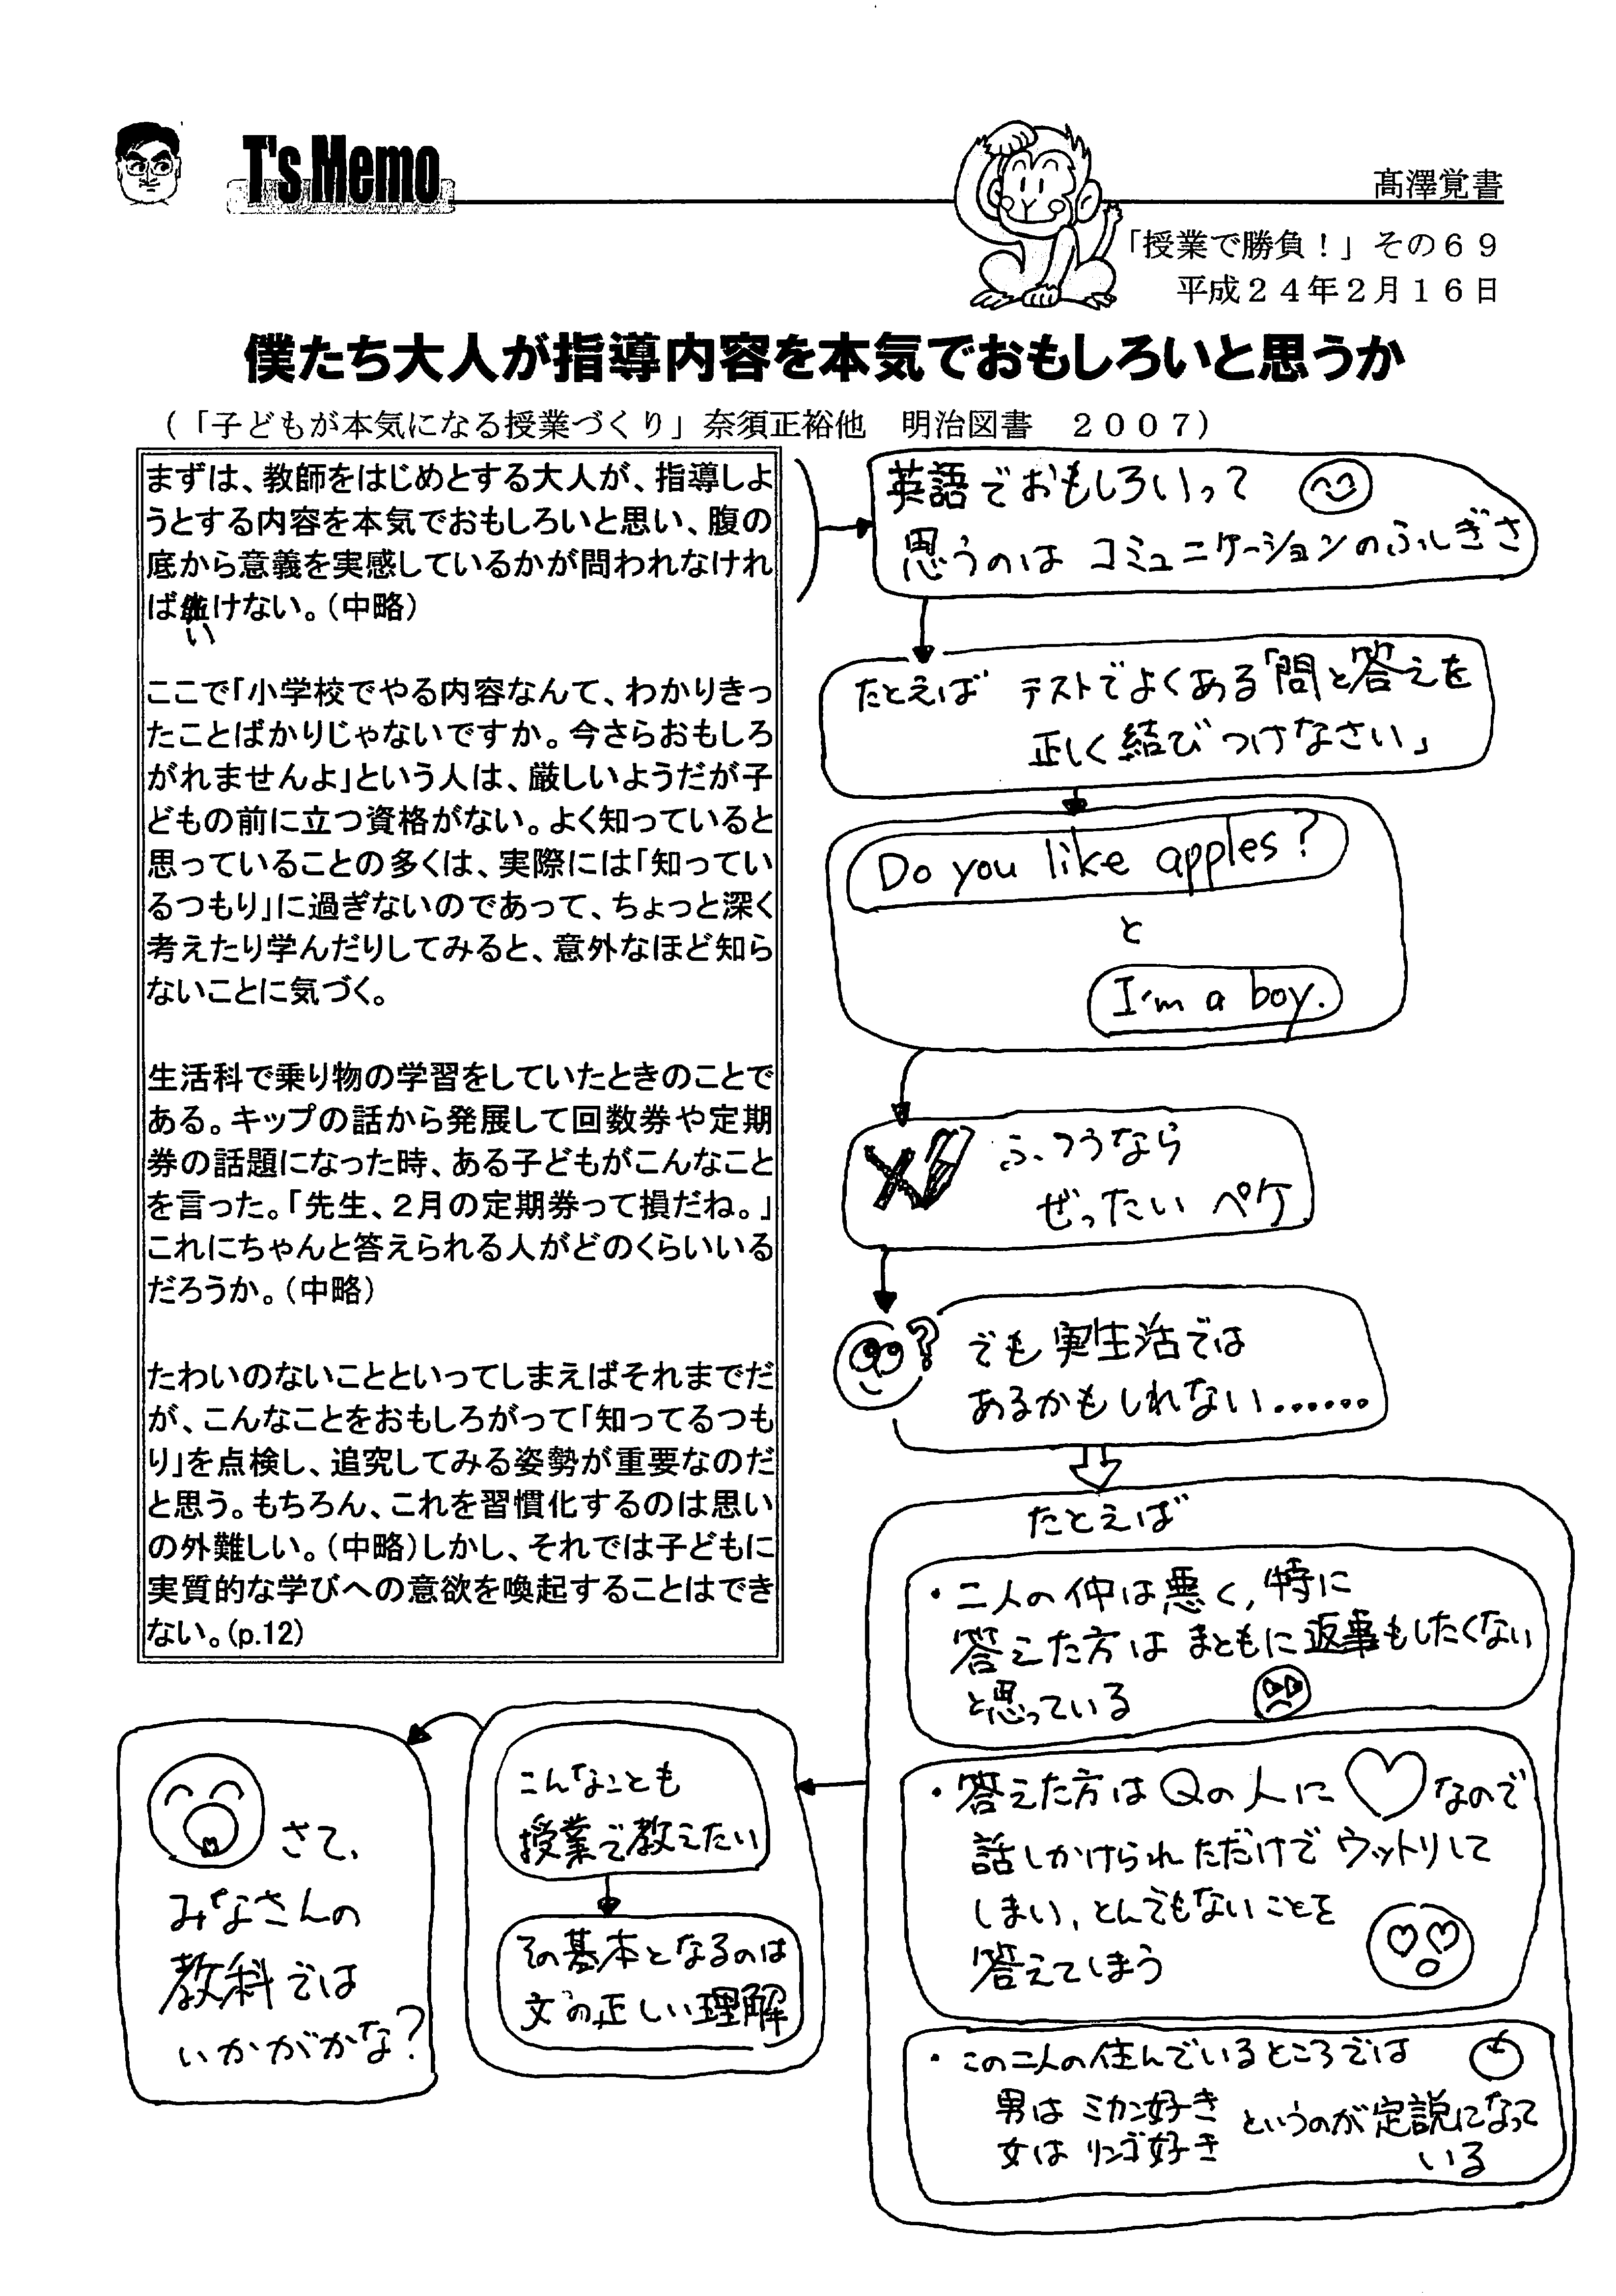 T's Memo
髙澤覚書
「授業で勝負！」その６９
平成２４年２月１６日
僕たち大人が指導内容を本気でおもしろいと思うか
（「子どもが本気になる授業づくり」奈須正裕他　明治図書　２００７）
まずは、教師をはじめとする大人が、指導しよ
うとする内容を本気でおもしろいと思い、腹の
底から意義を実感しているかが問われなけれ
ばいけない。（中略）
ここで「小学校でやる内容なんて、わかりきっ
たことばかりじゃないですか。今さらおもしろ
がれませんよ」という人は、厳しいようだが子
どもの前に立つ資格がない。よく知っていると
思っていることの多くは、実際には「知ってい
るつもり」に過ぎないのであって、ちょっと深く
考えたり学んだりしてみると、意外なほど知ら
ないことに気づく。
生活科で乗り物の学習をしていたときのことで
ある。キップの話から発展して回数券や定期
券の話題になった時、ある子どもがこんなこと
を言った。「先生、２月の定期券って損だね。」
これにちゃんと答えられる人がどのくらいいる
だろうか。（中略）
たわいのないことといってしまえばそれまでだ
が、こんなことをおもしろがって「知ってるつも
り」を点検し、追究してみる姿勢が重要なのだ
と思う。もちろん、これを習慣化するのは思い
の外難しい。（中略）しかし、それでは子どもに
実質的な学びへの意欲を喚起することはでき
ない。（p.12）
英語でおもしろいって
思うのは コミュニケーションのふしぎさ
たとえば テストでよくある「問と答えを
正しく結びつけなさい」
Do you like apples?
と
I'm a boy.
ふつうなら
ぜったい ペケ
でも実生活では
あるかもしれない……
たとえば
・二人の仲は悪く，特に
答えた方は まともに返事もしたくない
と思っている
・答えた方はQの人に♡なので
話しかけられただけで ウットリして
しまい，とんでもないことを
答えてしまう
・この二人の住んでいるところでは
男は ミカン好き
女は リンゴ好き
というのが定説になって
いる
こんなことも
授業で教えたい
その基本となるのは
文の正しい理解
さて、
みなさんの
教科では
いかがかな？